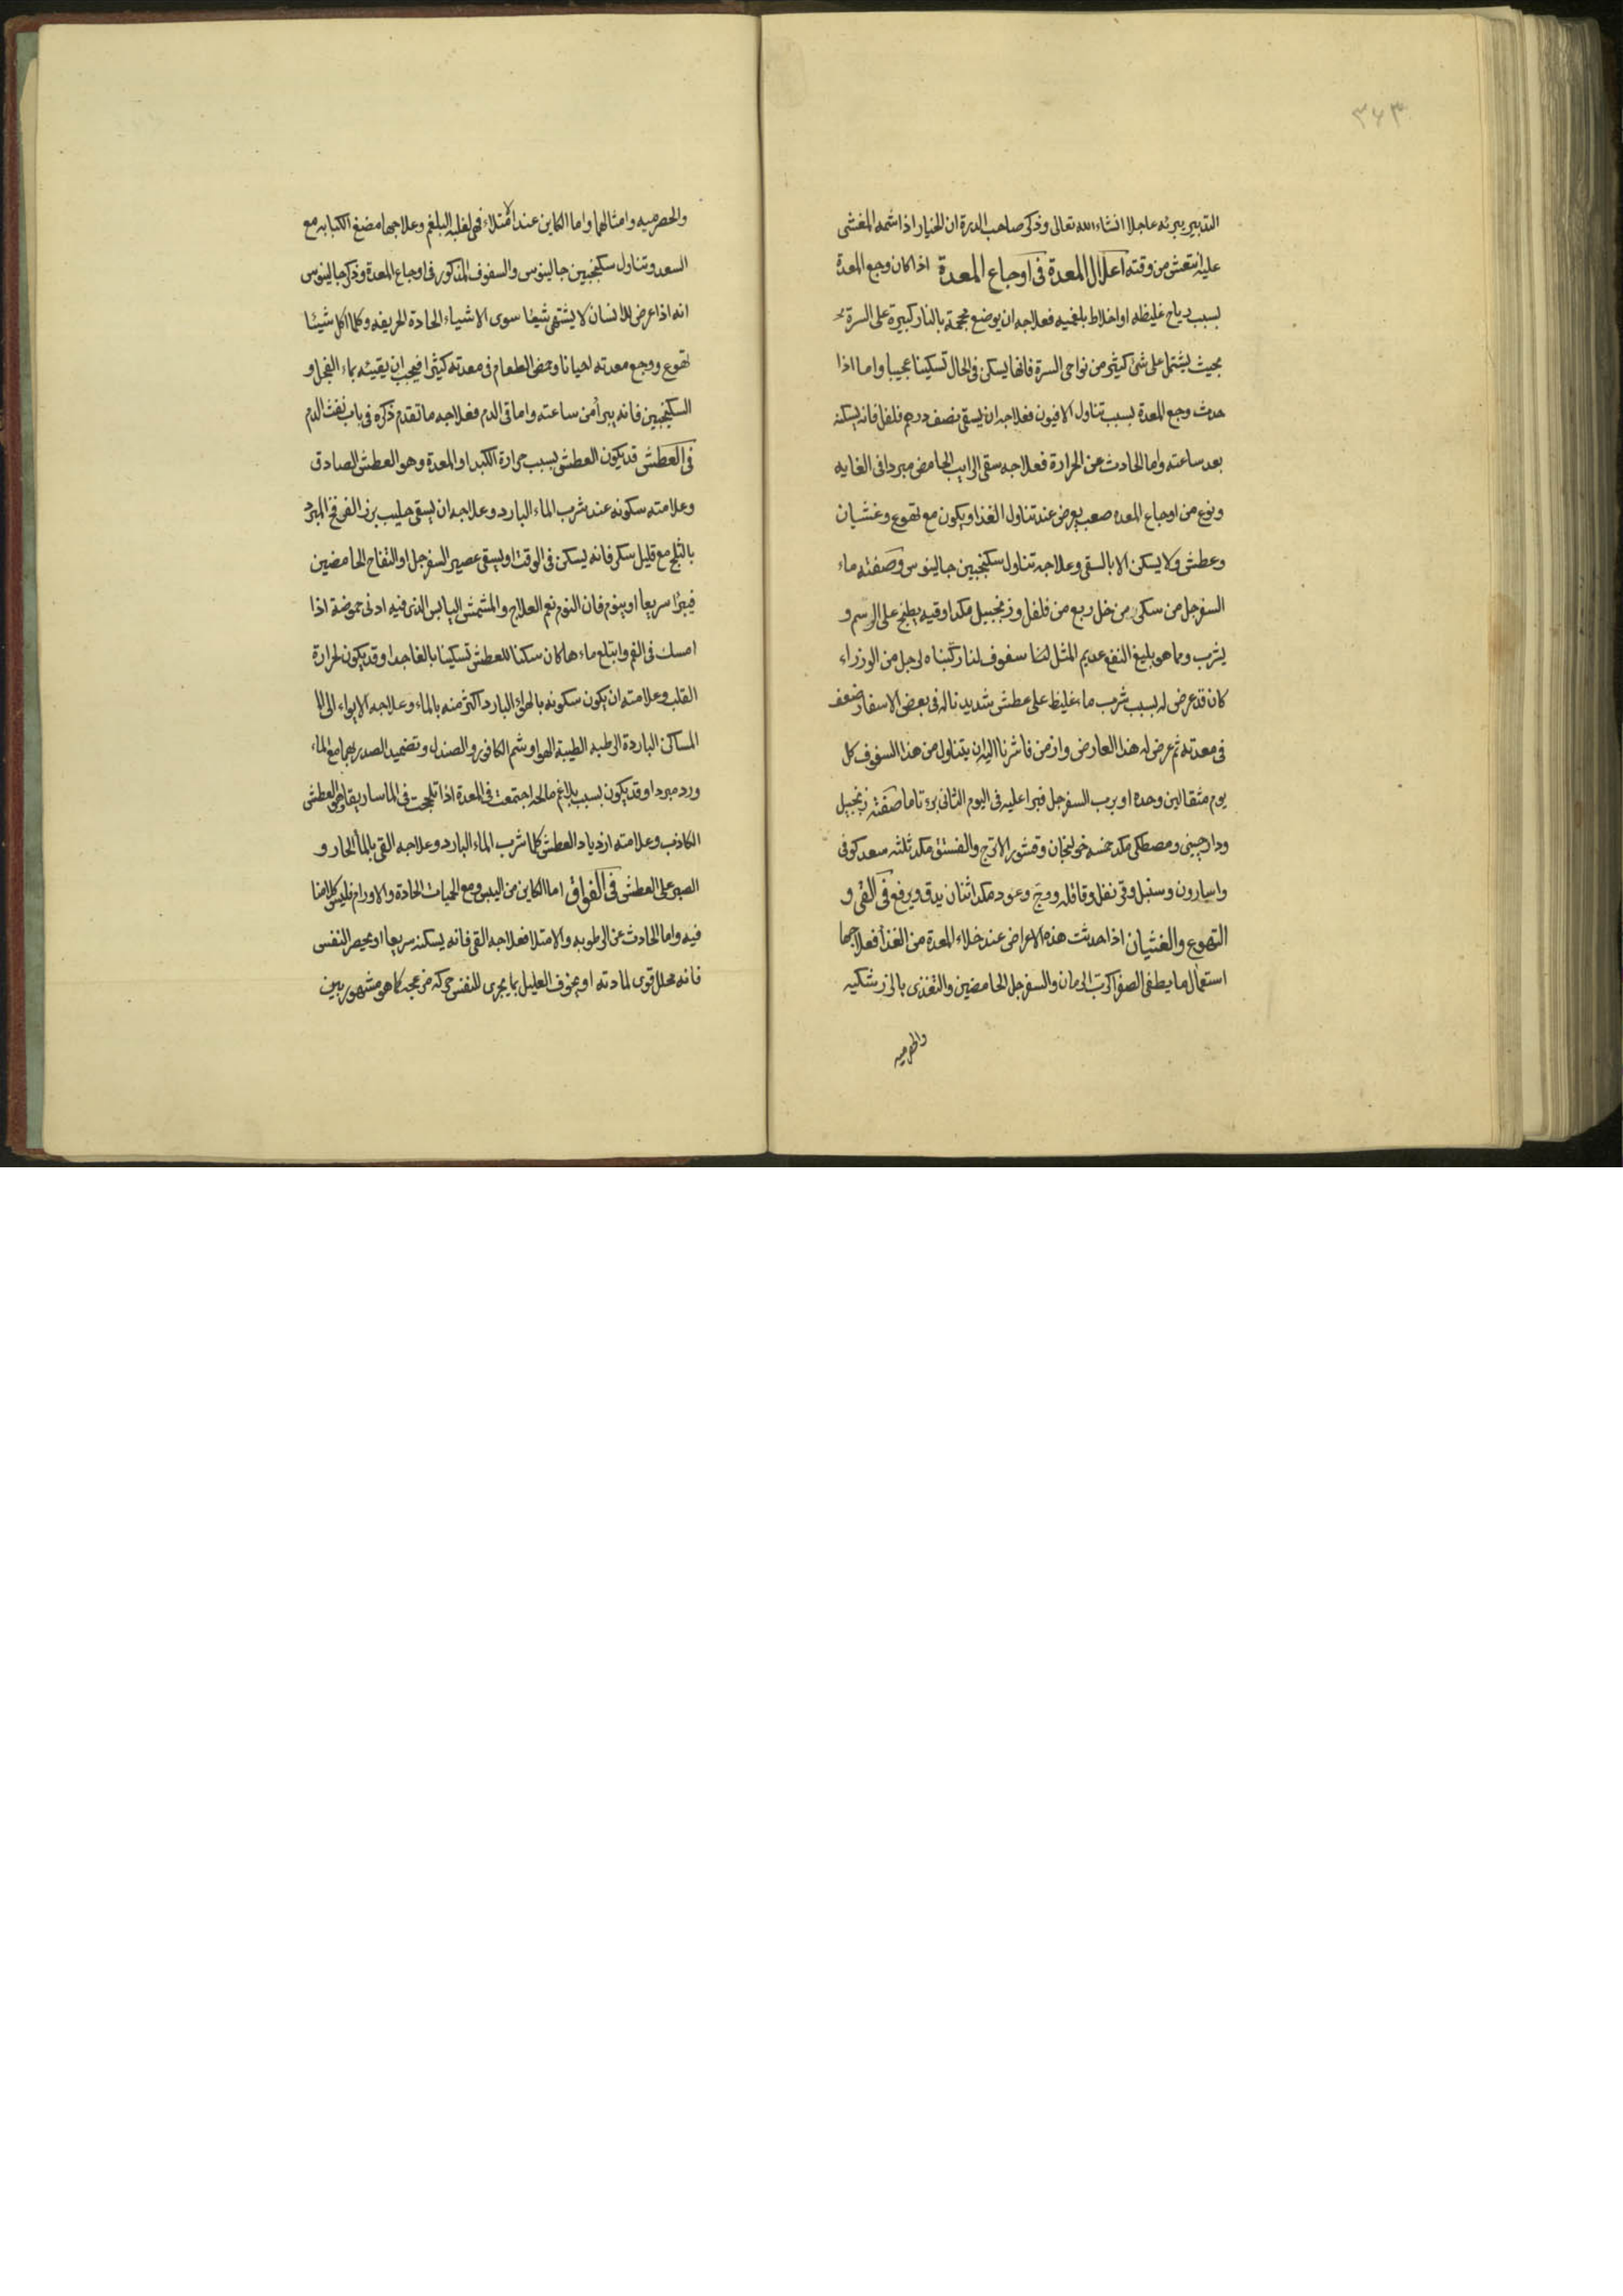 ٣٦٣
التدبير يبرئه عاجلا انشاء الله تعالى وذكر صاحب الدرة ان الخيار اذا شمه المغشى
عليه انتعش من وقته اعلال المعدة فى اوجاع المعدة اذا كان وجع المعدة
بسبب رياح غليظه او اخلاط بلغميه فعلاجه ان يوضع محجمة بالنار كبيرة على السرة
بحيث يشتمل على شئ كثير من نواحى السرة فانها يسكن فى الحال تسكينا عجيبا واما اذا
حدث وجع المعدة بسبب تناول الافيون فعلاجه ان يسقى نصف درهم فلفل فانه يسكنه
بعد ساعته واما الحادث عن الحرارة فعلاجه سقى الرايب الحامض مبردا فى الغايه
ونوع من اوجاع المعده صعب يعرض عند تناول الغذا ويكون مع تهوع وغشيان
وعطش ولا يسكن الا بالسقى وعلاجه تناول سكنجبين جالينوس وصفته ماء
السفرجل من سكر من خل ربع من فلفل وزنجبيل مكدا وقيه يطبخ على الرسم و
يشرب ومما هو بليغ النفع عديم المثل لنا سفوف لنا ركبناه لرجل من الوزراء
كان قد عرض له بسبب شرب ماء غليظ على عطش شديد ناله فى بعض الاسفار ضعف
فى معدته ثم عرض له هذا العارض وازمن فاشرنا اليه ان يتناول من هذا السفوف كل
يوم مثقالين وحده او برب السفرجل فبرا عليه فى اليوم الثانى برء تاما صفته زنجبيل
ودارجينى ومصطكى مكد خمسه خولنجان وقشور الاترج والفستق مكد ثلثه سعد كوفى
واسارون وسنبل وقرنفل وقاقله ووج وعود مكد اثنان يدق ويرفع فى القى و
التهوع والغشيان اذا حدثت هذه الاعراض عند خلاء المعدة من الغذا فعلاجها
استعمال ما يطفى الصفرا كرب الرمان والسفرجل الحامضين والتغذى بالزرشكيه
والحصرميه
والحصرميه وامثالها واما الكاين عند الامتلاء فهى لغلبة البلغم وعلاجها مضغ الكبابه مع
السعد وتناول سكنجبين جالينوس والسفوف المذكور فى اوجاع المعدة وذكر جالينوس
انه اذا عرض للانسان لا يشتهى شيئا سوى الاشياء الحادة الحريفه وكلما اكل شيئا
تهوع ووجع معدته احيانا وحمض الطعام فى معدته كثيرا فيجب ان يقيئه بماء الفجل و
السكنجبين فانه يبرأ من ساعته واما قى الدم فعلاجه ما تقدم ذكره فى باب نفث الدم
فى العطش قد يكون العطش بسبب حرارة الكبد او المعدة وهو العطش الصادق
وعلامته سكونه عند شرب الماء البارد وعلاجه ان يسقى حليب بزر الفرفخ المبرد
بالثلج مع قليل سكر فانه يسكن فى الوقت او يسقى عصير السفرجل او التفاح الحامضين
فيبرا سريعا او ينوم فان النوم نعم العلاج والمشمش اليابس الذى فيه ادنى حموضة اذا
امسك فى الفم وابتلع ماءها كان سكنا للعطش تسكينا بالغا جدا وقد يكون لحرارة
القلب وعلامته ان يكون سكونه بالهواء البارد اكثر منه بالماء وعلاجه الايواء الى الا
المساكن الباردة الرطبه الطيبة الهوا وشم الكافور والصندل وتضميد الصدر بهما مع الماء
ورد مبرد او قد يكون بسبب بلاغم مالحه اجتمعت فى المعدة اذا تلججت فى الماساريقا وهو العطش
الكاذب وعلامته ازدياد العطش كلما شرب الماء البارد وعلاجه القى بالماء الحار و
الصبر على العطش فى الفواق اما الكاين من اليبس ومع الحميات الحادة والاورام فليس كلامنا
فيه واما الحادث عن الرطوبه والامتلا فعلاجه القى فانه يسكنه سريعا او يحصر النفس
فانه محلل قوى لمادته او يخوف العليل بما يجرى للنفس حركة مزعجه كما هو مشهور بين